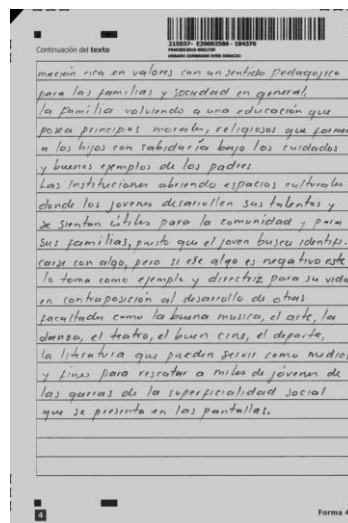 Continuación del texto
215037- E20002586 - 184376
mación rica en valores con un sentido Pedagogico
para las familias y sociedad en general,
la familia volviendo a una educación que
posea principios morales, religiosos que formen
a los hijos con sabiduría bajo los cuidados
y buenos ejemplos de los padres
Las Instituciones abriendo espacios culturales
donde los jovenes desarrollen sus talentos y
se sientan útiles para la comunidad y para
sus familias, puesto que el joven busca identifi-
carse con algo, pero si ese algo es negativo este
lo toma como ejemplo y directriz para su vida
en contraposición al desarrollo de otras
facultades como la buena musica, el arte, la
danza, el teatro, el buen cine, el deporte,
la literatura que pueden servir como medios
y fines para rescatar a miles de jóvenes de
las garras de la superficialidad social
que se presenta en las pantallas.
4
Forma 4